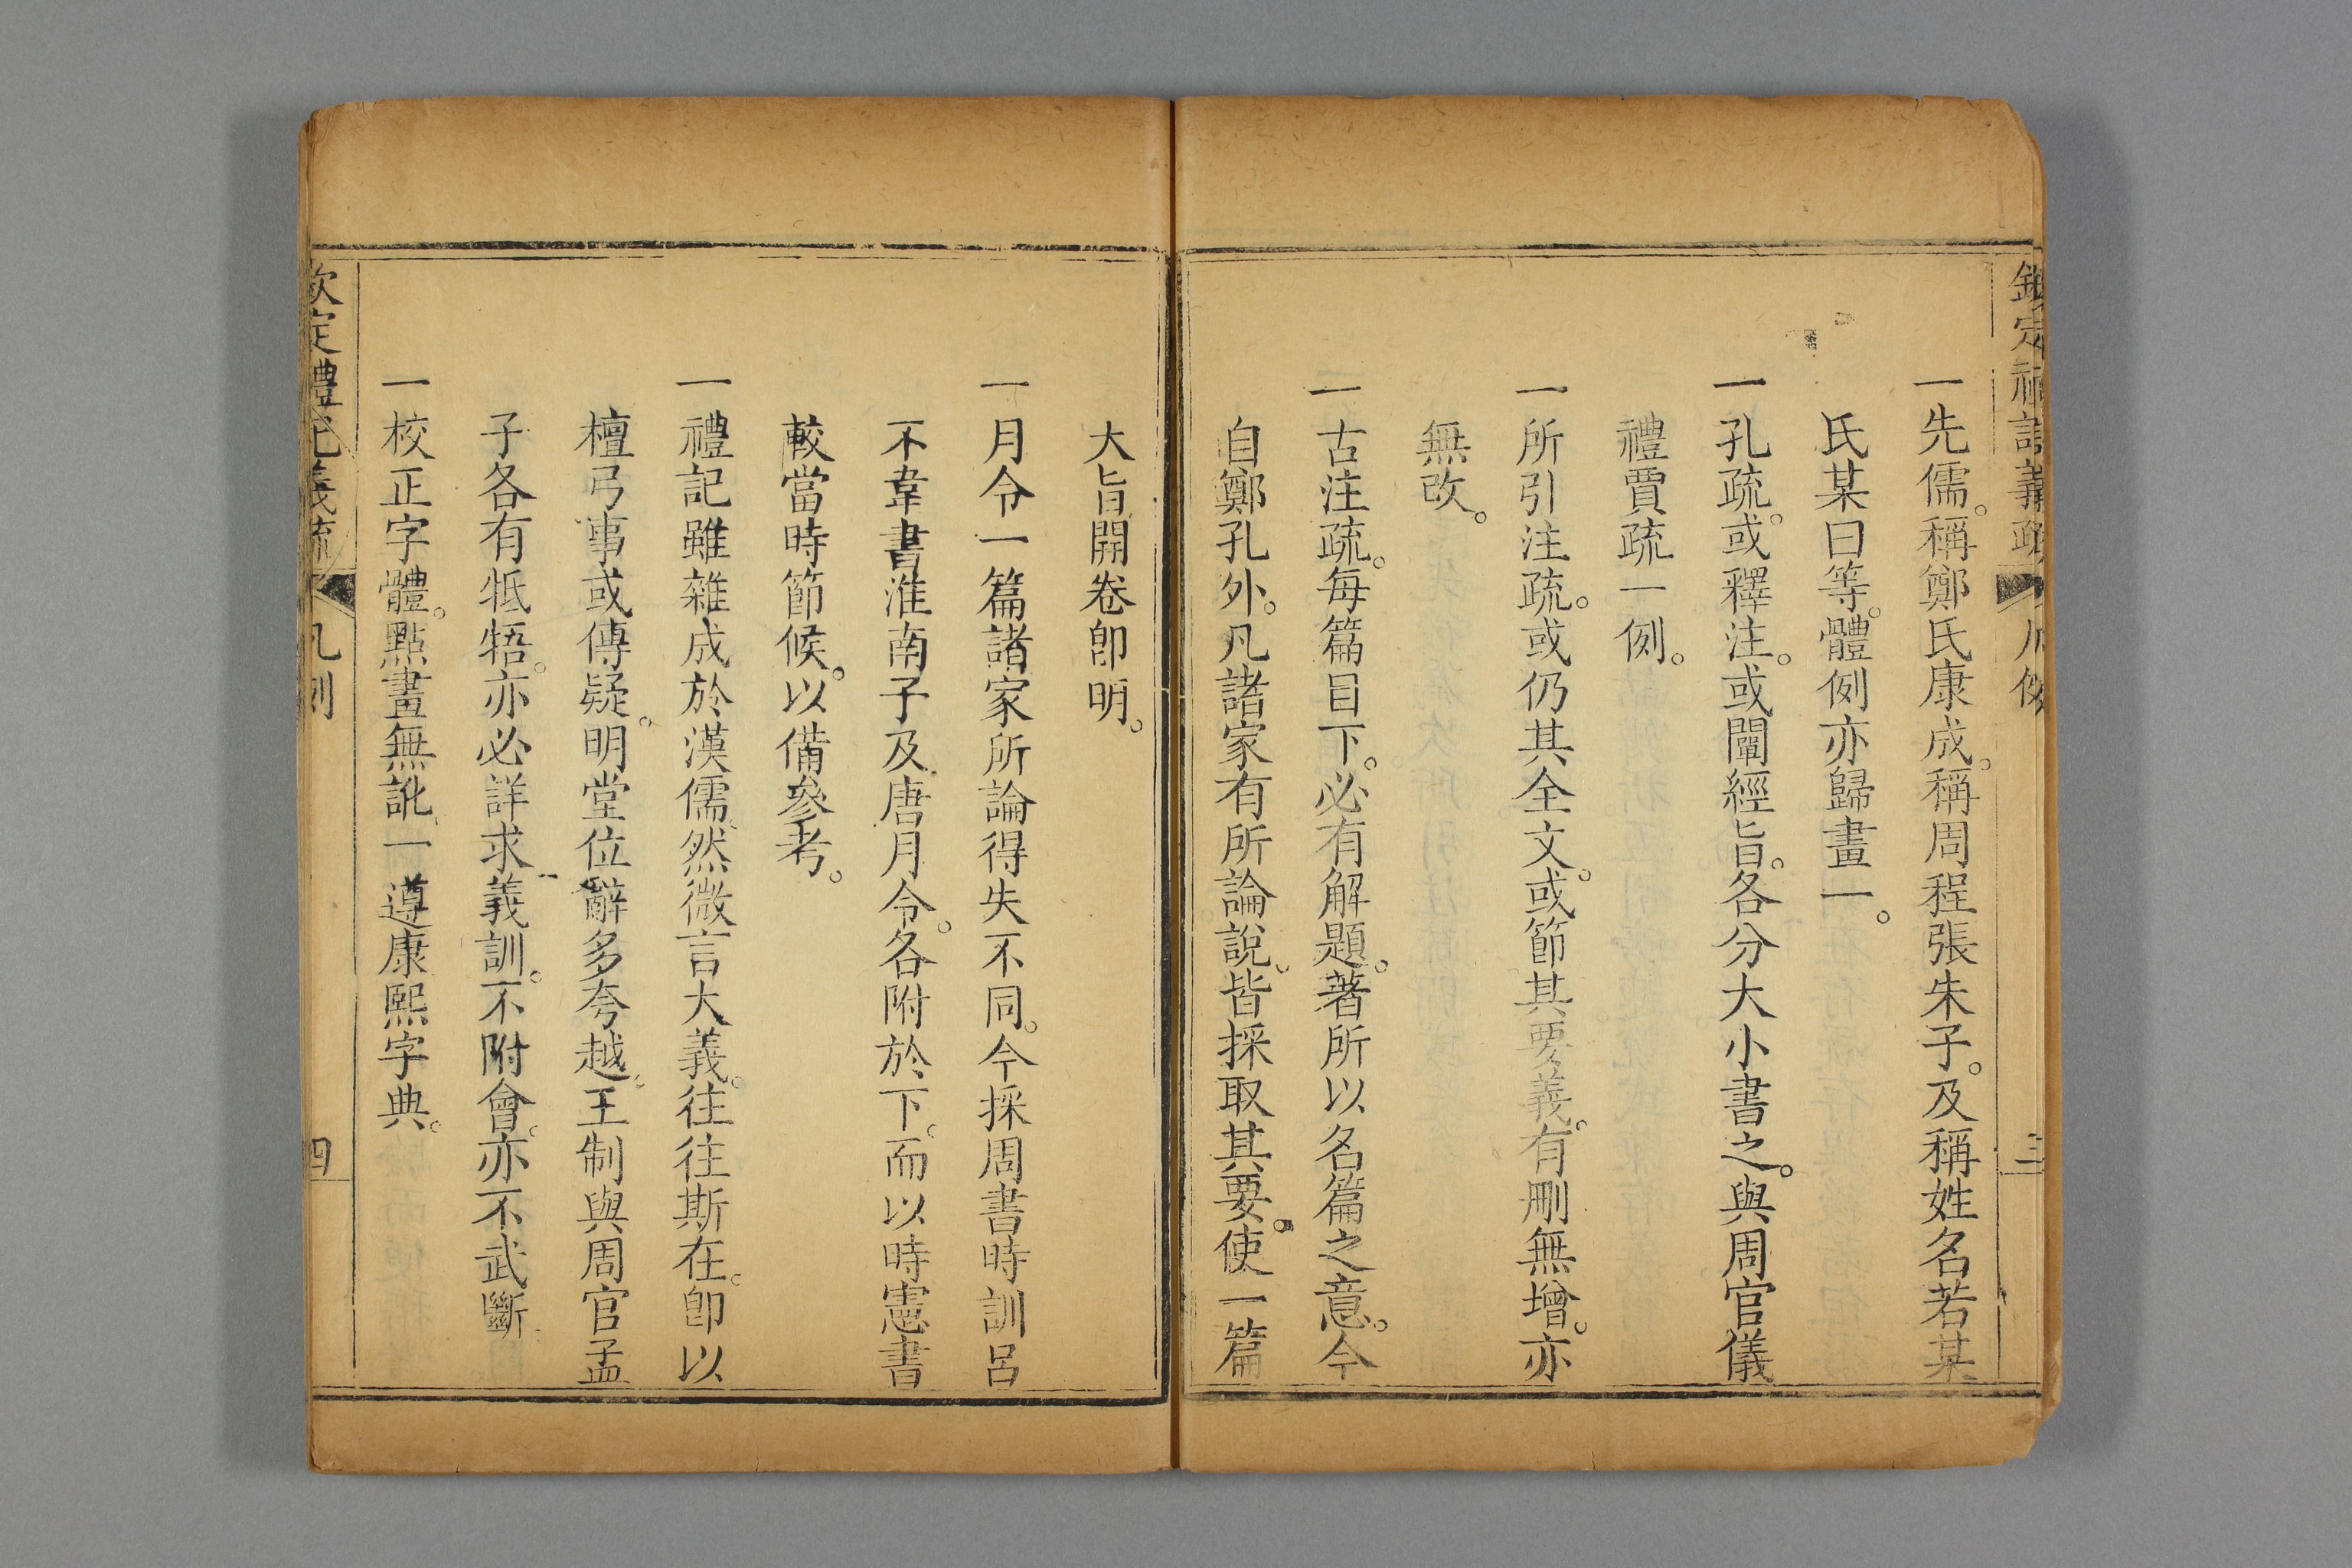 欽定禮記義疏 凡例 三
一先儒。稱鄭氏康成。稱周程張朱子。及稱姓名若某
氏某曰等。體例亦歸畫一。
一孔疏。或釋注。或闡經旨。各分大小書之。與周官儀
禮賈疏一例。
一所引注疏。或仍其全文。或節其要義。有刪無增。亦
無改。
一古注疏。每篇目下。必有解題。著所以名篇之意。今
自鄭孔外。凡諸家有所論說。皆採取其要。使一篇
大旨開卷卽明。
一月令一篇諸家所論得失不同。今採周書時訓呂
不韋書淮南子及唐月令。各附於下。而以時憲書
較當時節候。以備參考。
一禮記雖雜成於漢儒。然微言大義。往往斯在。卽以
檀弓事或傳疑。明堂位辭多夸越。王制與周官孟
子各有牴牾。亦必詳求義訓。不附會。亦不武斷。
一校正字體。點畫無訛。一遵康熙字典。
欽定禮記義疏 凡例 四